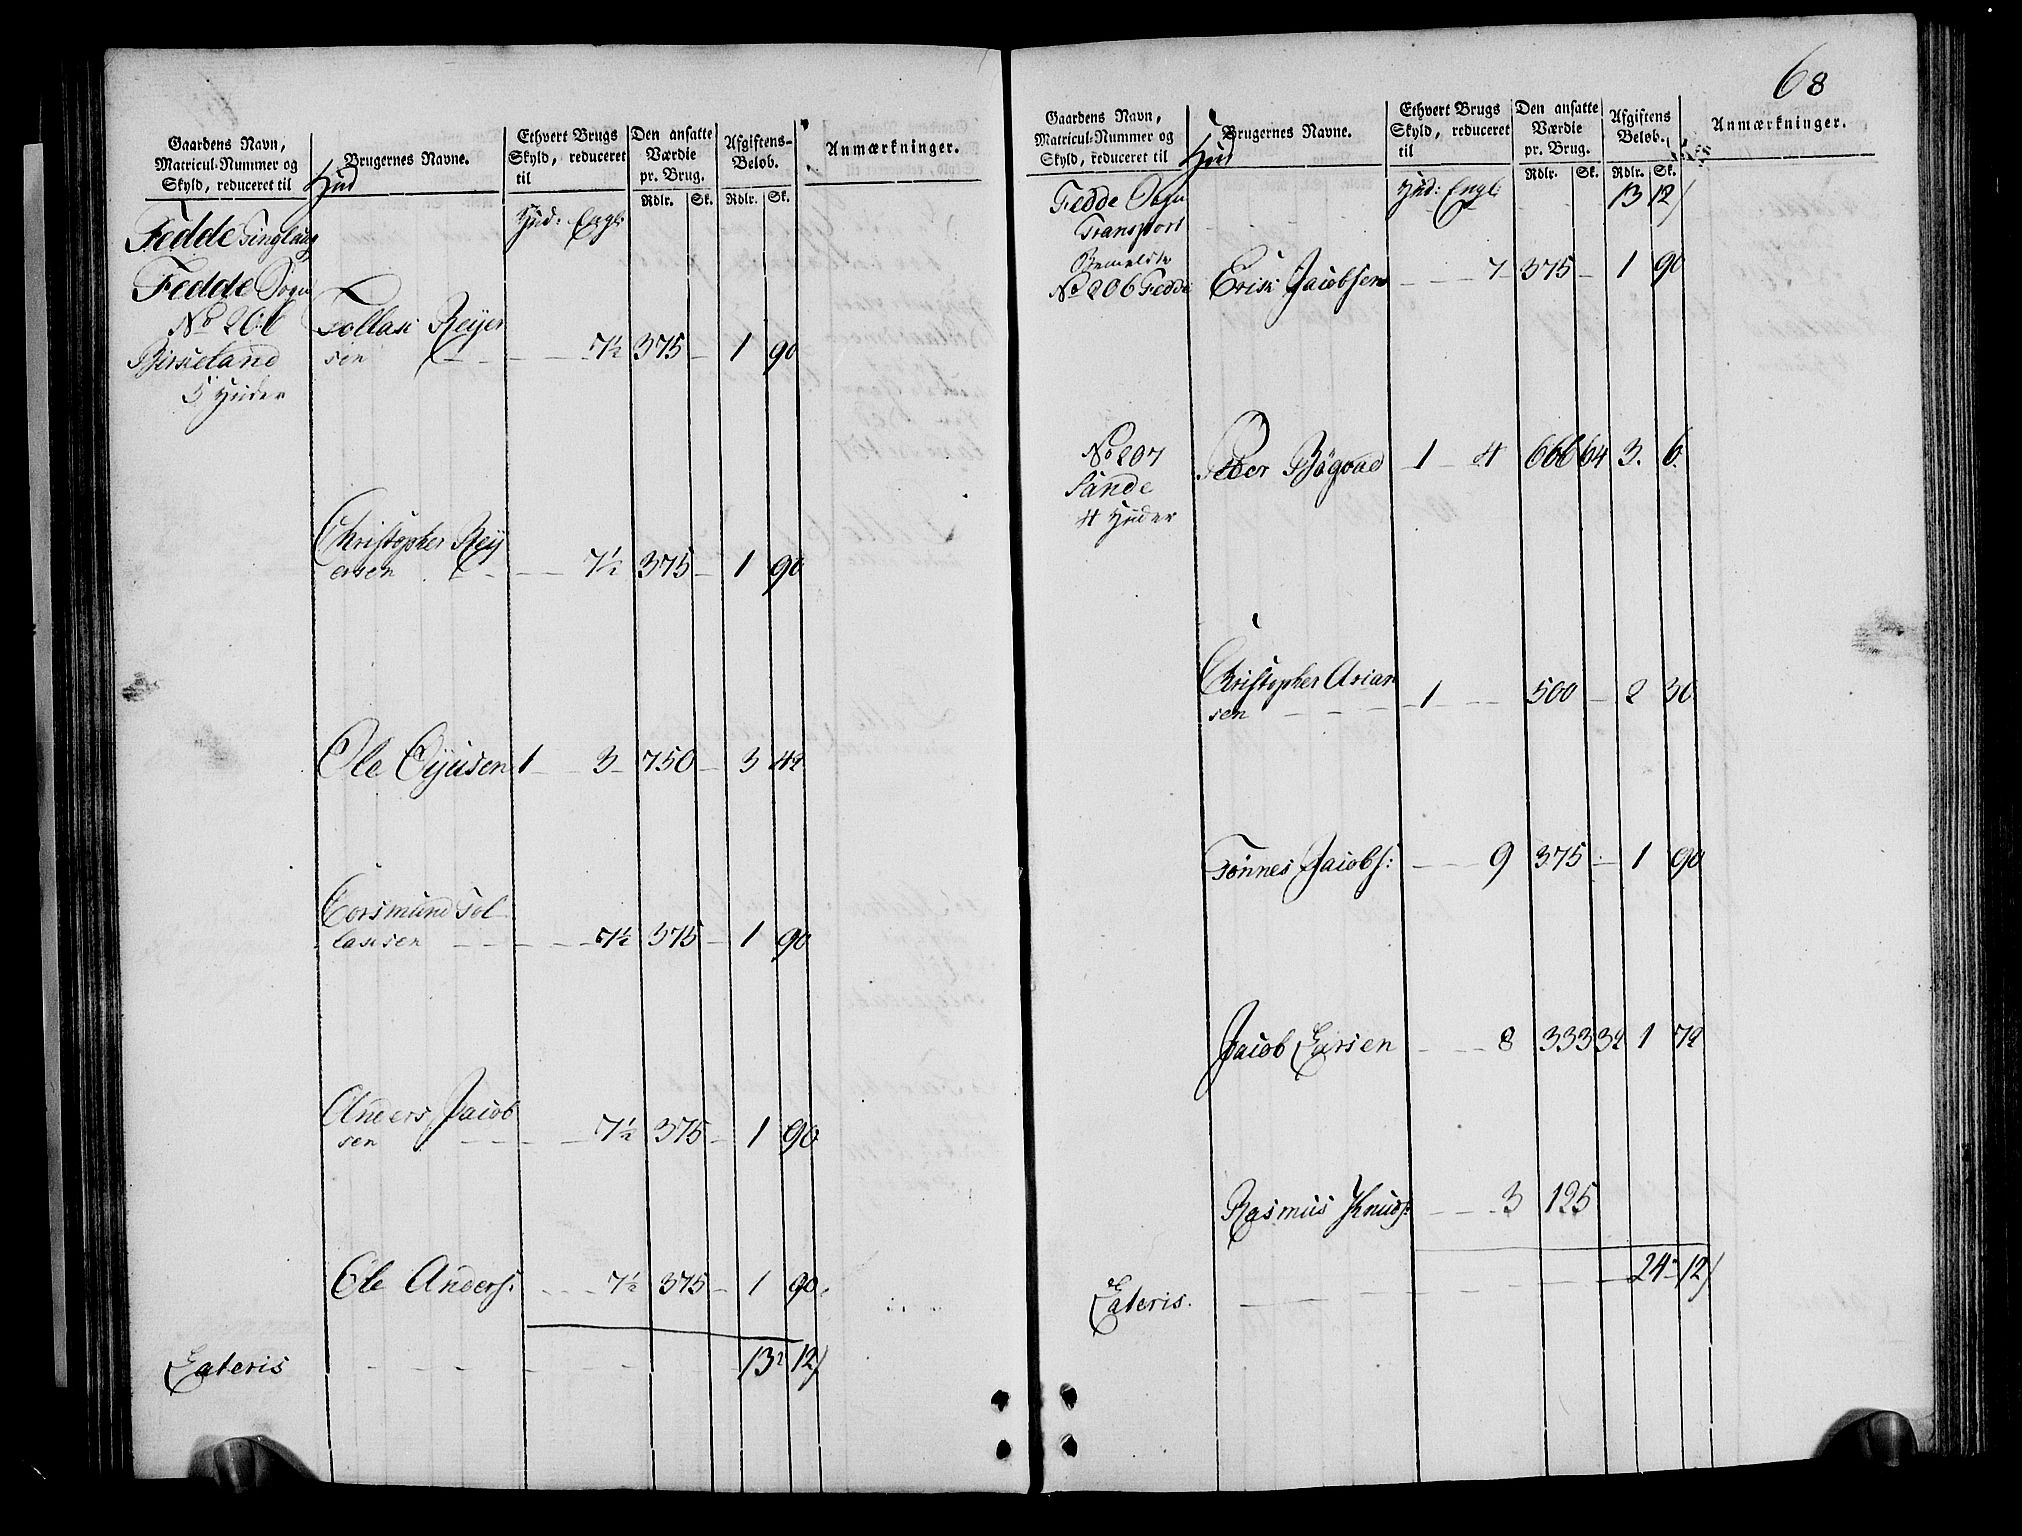 Gaardens Navn,
Matricul-Nummer og
Skyld, reduceret til
Hud
Brugernes Navne.
Ethvert Brugs
Skyld, reduceret
til
Den ansatte
Værdie
pr. Brug.
Rdlr. Sk.
Afgiftens-
Beløb.
Rdlr. Sk.
Anmærkninger.
Hud: Engl:
Fedde Tinglaug
Fedde Sogn
No 206
Birkeland
5 Huder
Tollak Reyer
sen 7½ 375 - 1 90
Christopher Rey
ersen 7½ 375 - 1 90
Ole 1 3 750 - 3 42
Torsmund Tol
laksen 7½ 375 - 1 90
Anders Jacob
sen 7½ 375 - 1 90
Ole Anders: 7½ 375 - 1 90
Lateris 13 12
68
Gaardens Navn,
Matricul-Nummer og
Skyld, reduceret til
Hud
Brugernes Navne.
Ethvert Brugs
Skyld, reduceret
til
Den ansatte
Værdie
pr. Brug.
Rdlr. Sk.
Afgiftens
Beløb.
Rdlr. Sk.
Anmærkninger.
Hud: Engl:
Fedde Sogn
Transport 13 12
No 206 Fedde Erik Jacobsen 7 375 - 1 90
No 207
Sande
4 Huder
Peder Bøgvad 1 4 666 64 3 6
Christopher Asian
sen 1 500 - 2 30
Tønnes Jacobs: 9 375 - 1 90
Jacob Larsen 8 333 32 1 72
Rasmus Knuds: 3 125
Lateris. 24 12